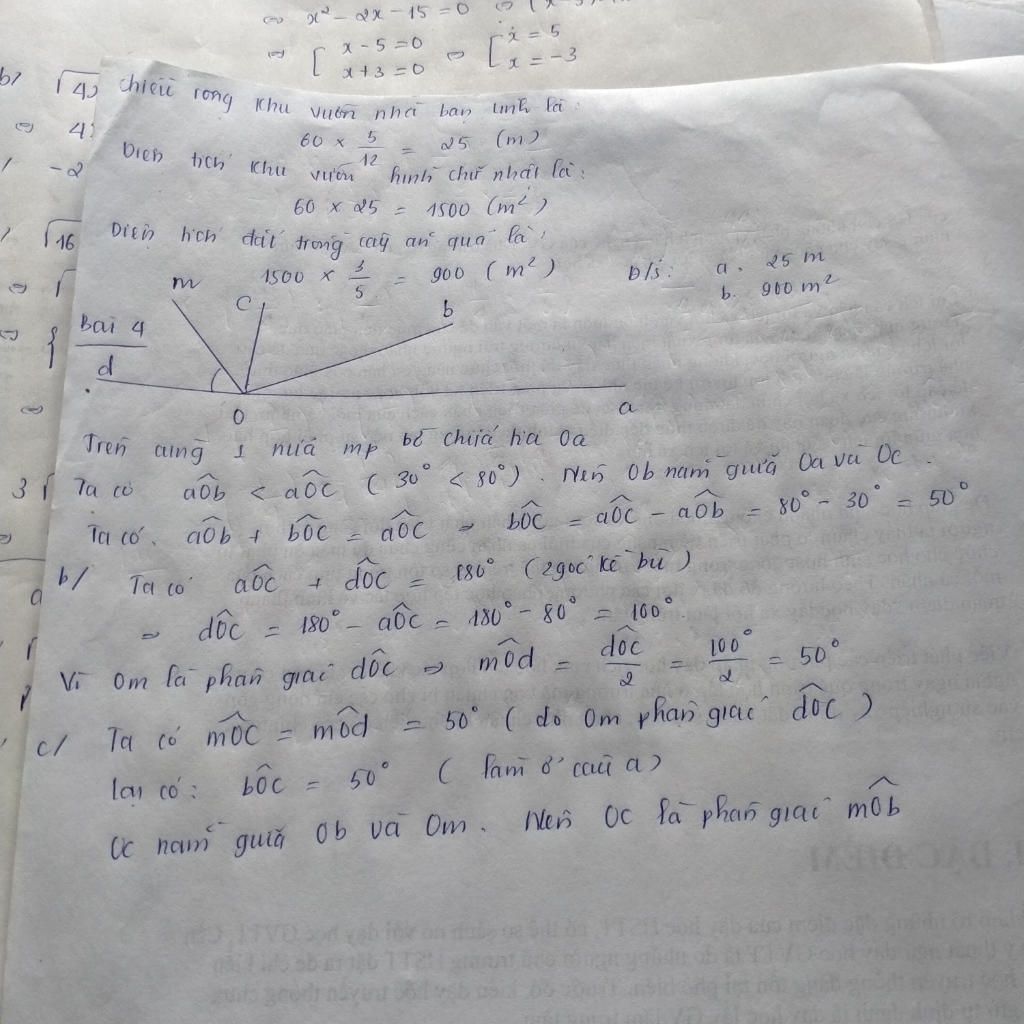 ⇔ x² - 2x - 15 = 0 ⇔
⇔ [ x - 5 = 0 ⇔ [ x = 5
x + 3 = 0 x = -3
b/
⇔ 4
-2
√16
⇔ √
3√
chiều rộng khu vườn nhà bạn là:
60 × 5/12 = 25 (m)
Diện tích khu vườn hình chữ nhật là:
60 × 25 = 1500 (m²)
Diện tích đất trồng cây ăn quả là:
1500 × 3/5 = 900 (m²)
Đ/S: a. 25 m
b. 900 m²
Bài 4
m
c
b
d
O
a
Trên cùng 1 nửa mp bờ chứa tia Oa
Ta có aÔb < aÔc (30° < 80°). Nên Ob nằm giữa Oa và Oc.
Ta có. aÔb + bÔc = aÔc ⇒ bÔc = aÔc - aÔb = 80° - 30° = 50°
b/ Ta có aÔc + dÔc = 180° (2 góc kề bù)
⇒ dÔc = 180° - aÔc = 180° - 80° = 100°
Vì Om là phân giác dÔc ⇒ mÔd = dÔc/2 = 100°/2 = 50°
c/ Ta có mÔc = mÔd = 50° (do Om phân giác dÔc)
lại có: bÔc = 50° (làm ở câu a)
Oc nằm giữa Ob và Om. Nên Oc là phân giác mÔb